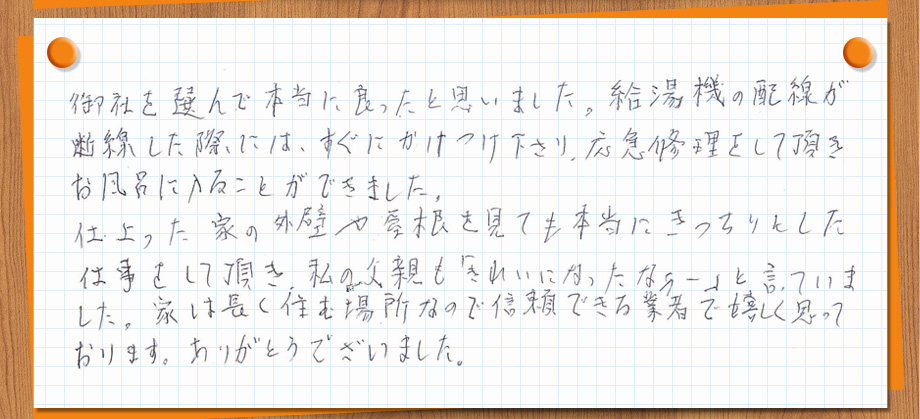 御社を選んで本当に良ったと思いました。給湯機の配線が
断線した際には、すぐにかけつけ下さり、応急修理をして頂き
お風呂に入ることができました。
仕上った家の外壁や屋根を見ても本当にきっちりとした
仕事をして頂き、私の父親も「きれいになったなぁー」と言っていま
した。家は長く住む場所なので信頼できる業者で嬉しく思って
おります。ありがとうございました。